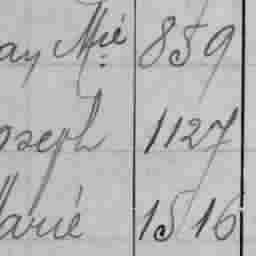 ay Mié 859
oseph 1127
arié 1516